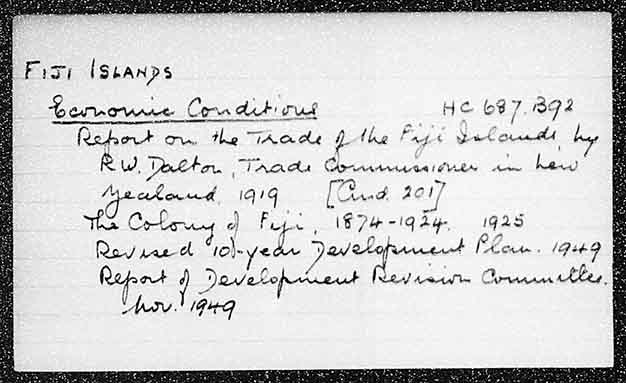 FIJI ISLANDS
Economic Conditions HC 687.B92
Report on the Trade of the Fiji Islands by
R.W. Dalton, Trade Commissioner in New
Zealand. 1919 [Cmd. 201]
The Colony of Fiji, 1874-1924. 1925
Revised 10-year Development Plan. 1949
Report of Development Revision Committee.
Nov. 1949